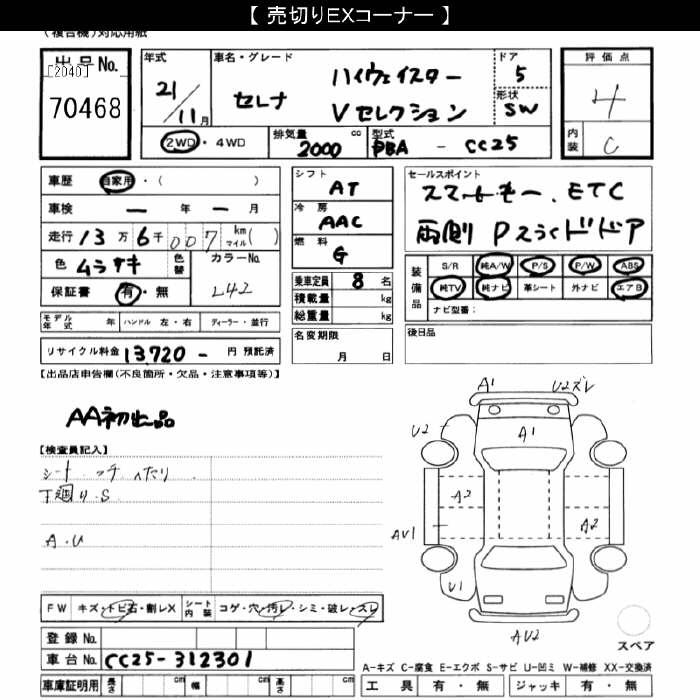 【 売切りEXコーナー 】
(複合機)対応用紙
出品No.
[2040]
70468
年式
21/11月
車名・グレード
セレナ ハイウェイスター
Vセレクション
ドア
5
形状
SW
評価点
4
内装
C
2WD・4WD
排気量
2000 cc
型式
DBA - CC25
車歴 自家用・( )
車検 ー 年 ー 月
走行 13万6千007 km マイル( )
色 ムラサキ 色替 カラーNo. L42
保証書 有・無
シフト
AT
冷房
AAC
燃料
G
乗車定員 8 名
積載量 kg
総重量 kg
セールスポイント
スマートキー、ETC
両側 Pスライドドア
装備品
S/R 純A/W P/S P/W ABS
純TV 純ナビ 革シート 外ナビ エアB
ナビ型番:
モデル年式 年 ハンドル 左・右 ディーラー・並行
リサイクル料金 13,720- 円 預託済
名変期限
月 日
後日品
【出品店申告欄(不良箇所・欠品・注意事項等)】
AA初出品
【検査員記入】
シート ヘタリ
下廻り.S
A.U
A1 U2ズレ
U2 A1
A2
AV1 A2
U1
AU2
スペア
FW キズ・トビ石・割レX シート内装 コゲ・穴・汚レ・シミ・破レ・スレ
登録No.
車台No. CC25-312301
車庫証明用 長さ cm 幅 cm 高さ cm
A-キズ C-腐食 E-エクボ S-サビ U-凹ミ W-補修 XX-交換済
工具 有・無 ジャッキ 有・無